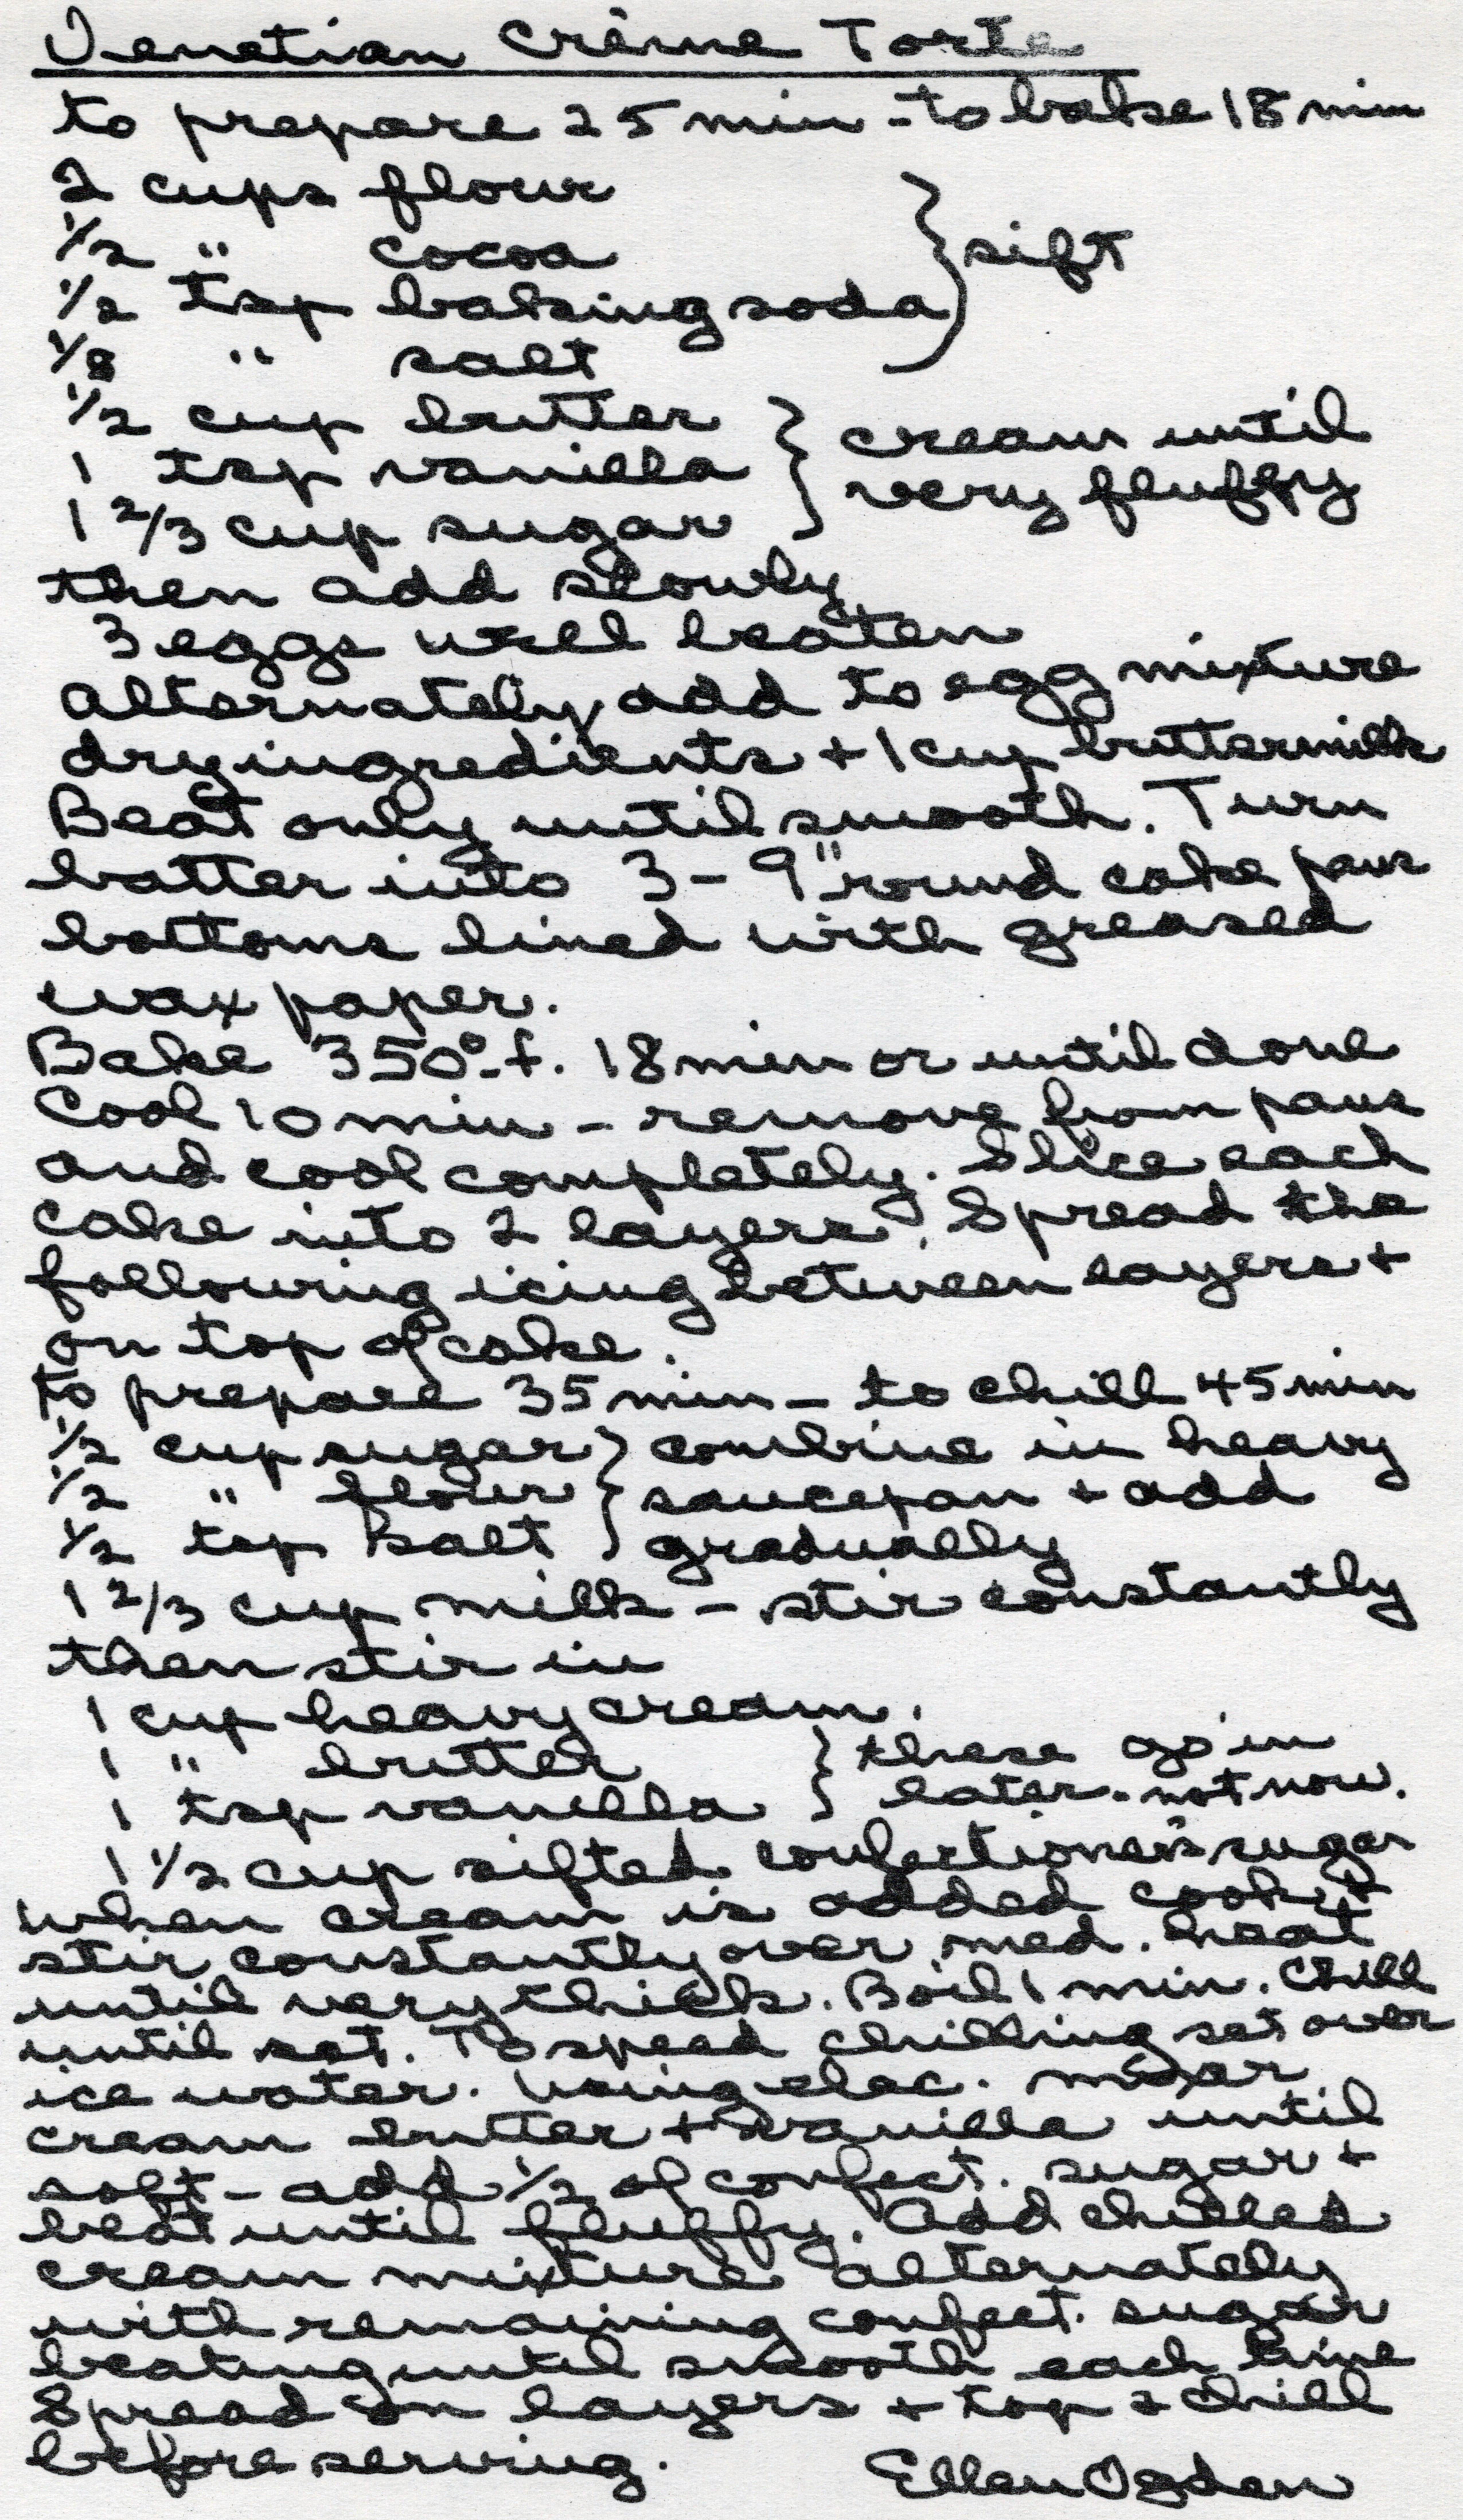 Venetian Crème Torte
to prepare 25 min - to bake 18 min
2 cups flour
1/2 " cocoa } sift
1/2 tsp baking soda
1/8 " salt
1/2 cup butter } cream until
1 tsp vanilla very fluffy
1 2/3 cup sugar
then add slowly
3 eggs well beaten
alternately add to egg mixture
dry ingredients + 1 cup buttermilk
Beat only until smooth. Turn
batter into 3 - 9" round cake pans
bottoms lined with greased
wax paper.
Bake 350°-f. 18 min or until done
Cool 10 min - remove from pans
and cool completely. Slice each
cake into 2 layers. Spread the
following icing between layers +
on top of cake.
to prepare 35 min - to chill 45 min
1/2 cup sugar } combine in heavy
1/2 " flour } saucepan + add
1/2 tsp salt gradually
1 2/3 cup milk - stir constantly
then stir in
1 cup heavy cream.
1 " butter } these go in
1 tsp vanilla } later - not now.
1 1/2 cup sifted confectioner's sugar
when cream is added cook +
stir constantly over med. heat
until very thick. Boil 1 min. Chill
until set. To speed chilling set over
ice water. Using elec. mixer
cream butter + vanilla until
soft - add 1/2 of confect. sugar +
beat until fluffy. Add chilled
cream mixture alternately
with remaining confect. sugar
beating until smooth each time
Spread on layers + top + chill
before serving.
Ellen Ogden